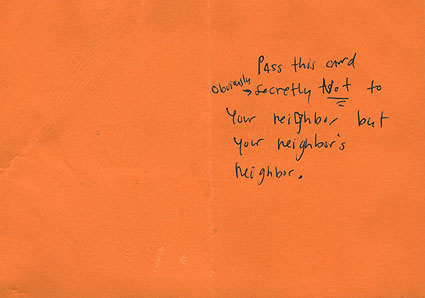 Pass this card
Obviously → Secretly Not to
Your neighbor but
your neighbor's
neighbor.